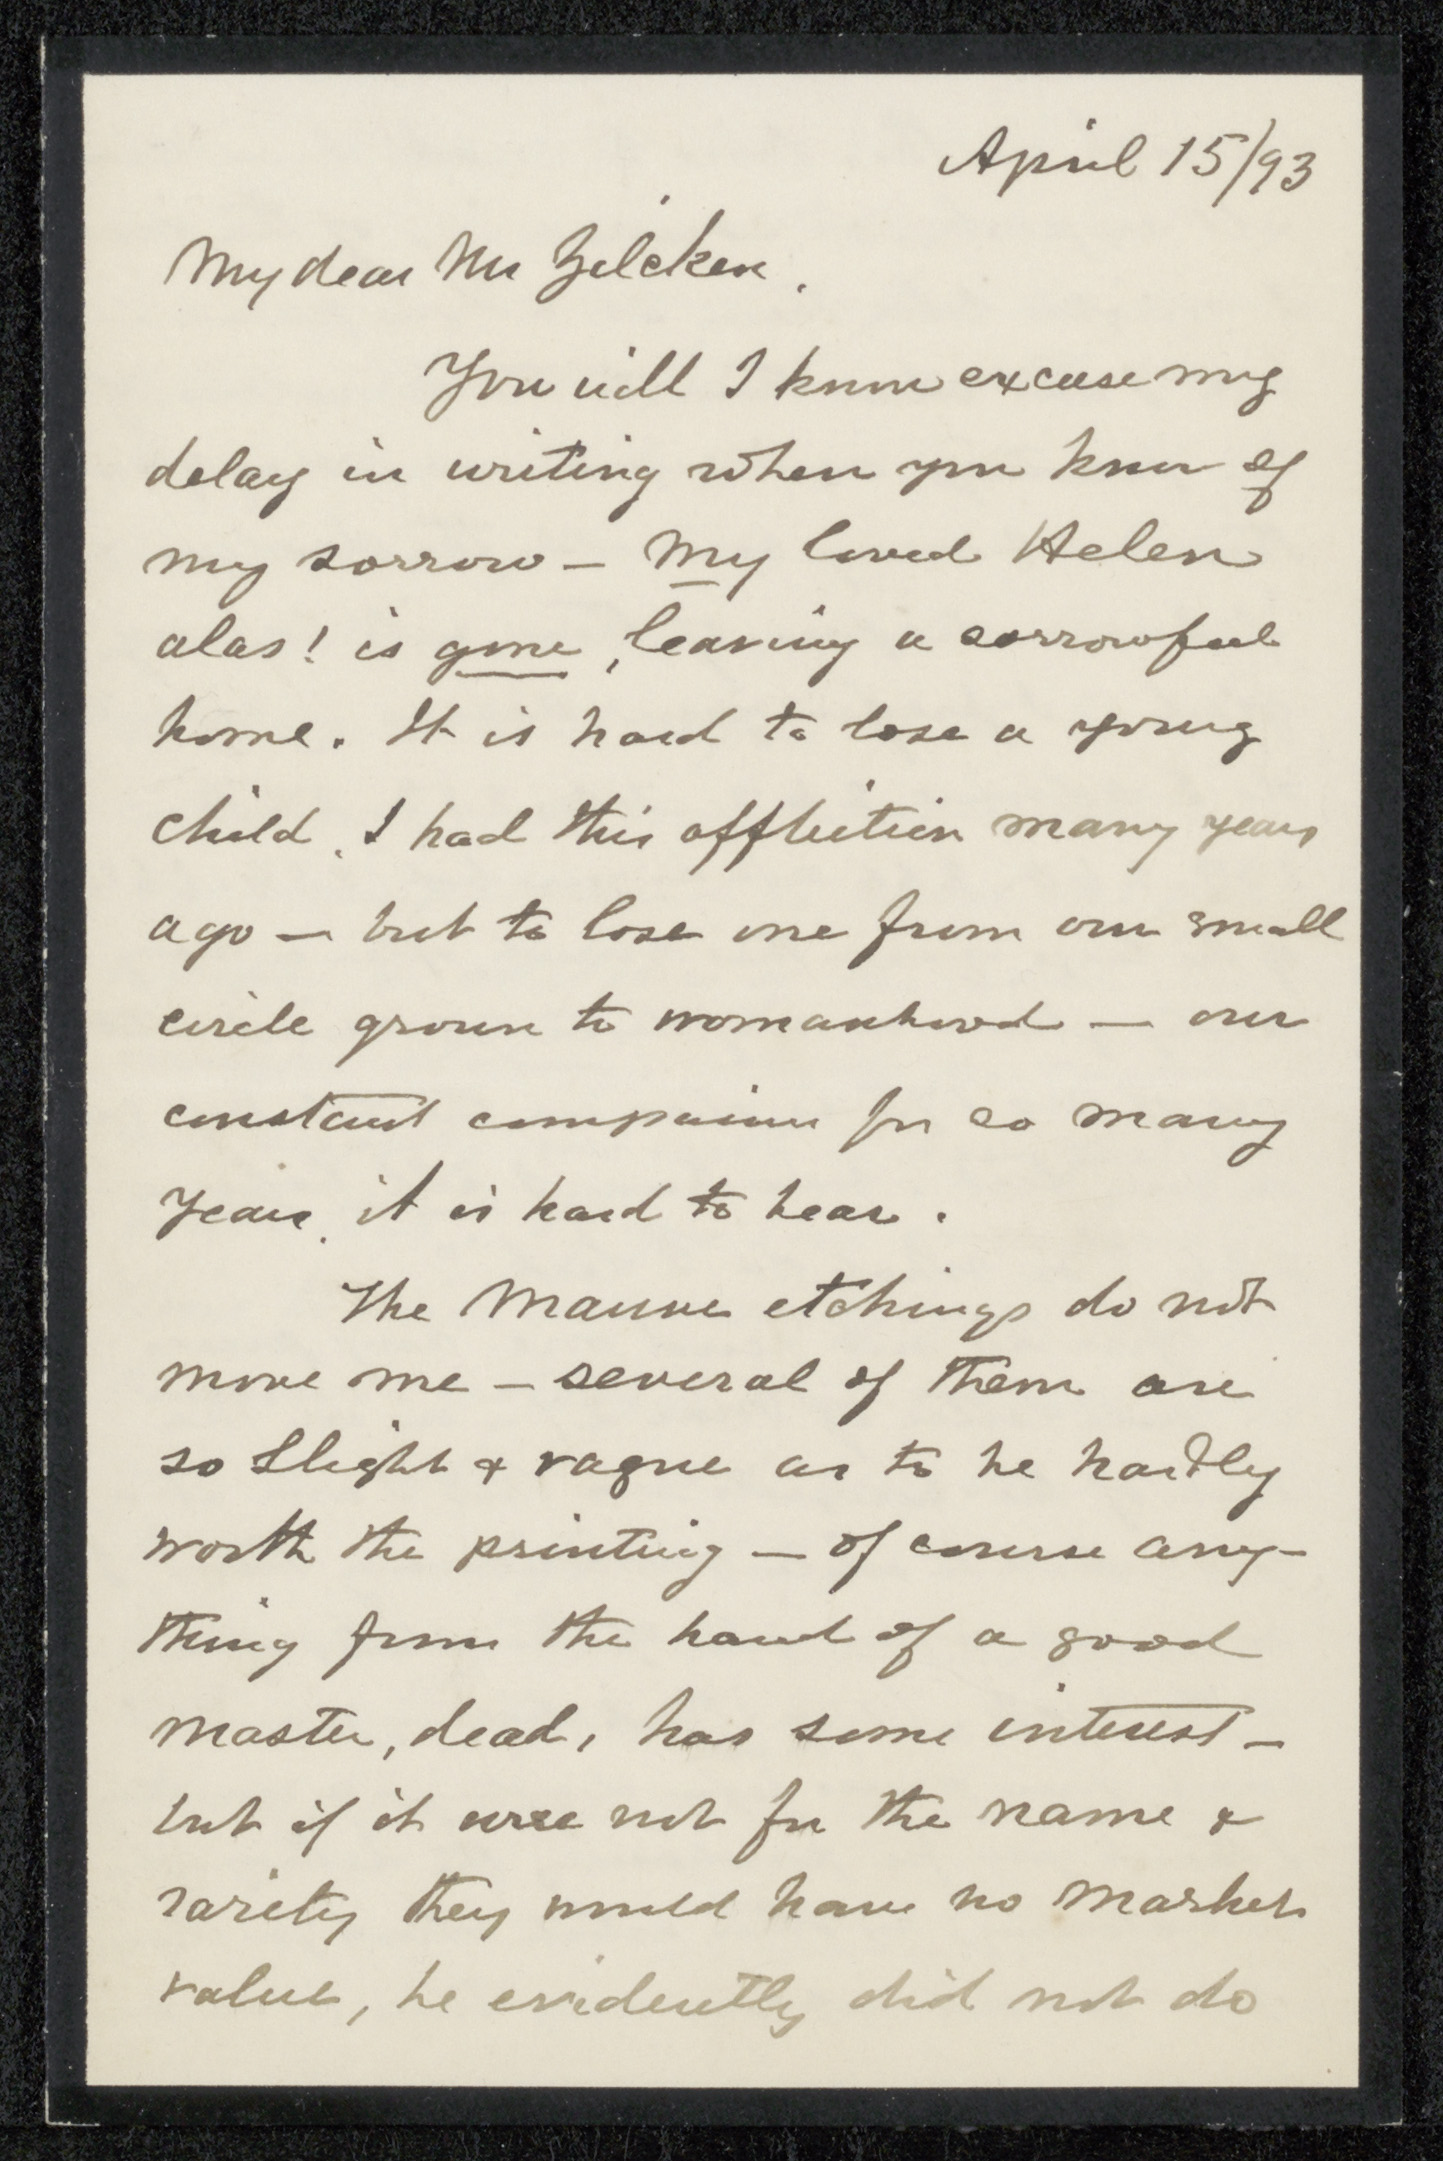 April 15/93
My dear Mr Zilcken.
You will I know excuse my
delay in writing when you know of
my sorrow — My loved Helen
alas! is gone, leaving a sorrowful
home. It is hard to lose a young
child, I had this affliction many years
ago — but to lose one from our small
circle grown to womanhood — our
constant companion for so many
years, it is hard to bear.
The Mauve etchings do not
move me — several of them are
so slight & vague as to be hardly
worth the printing — of course any-
thing from the hand of a good
master, dead, has some interest —
but if it were not for the name &
rarity they would have no market
value, he evidently did not do